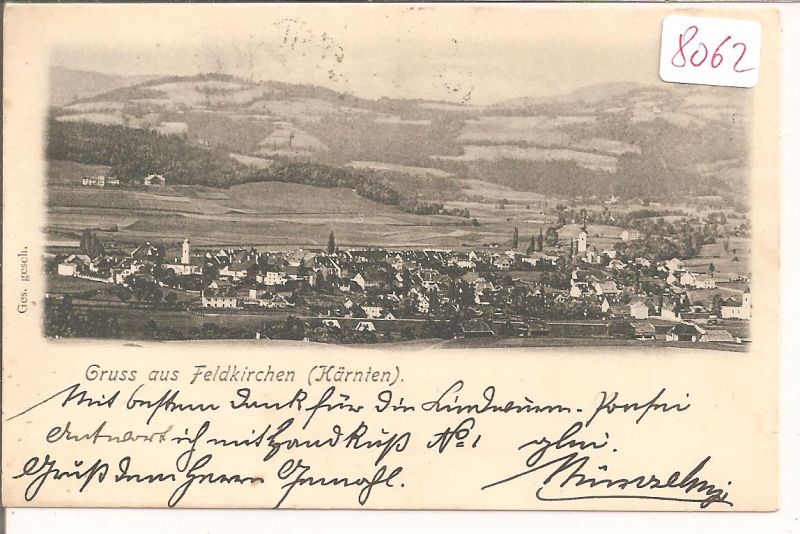 8062
Ges. gesch.
Gruss aus Feldkirchen (Kärnten).
Mit bestem Dank für die Lindwurm-
Antwort ich mit Handkuß No. 1
Gruß dem Herrn Gemahl.